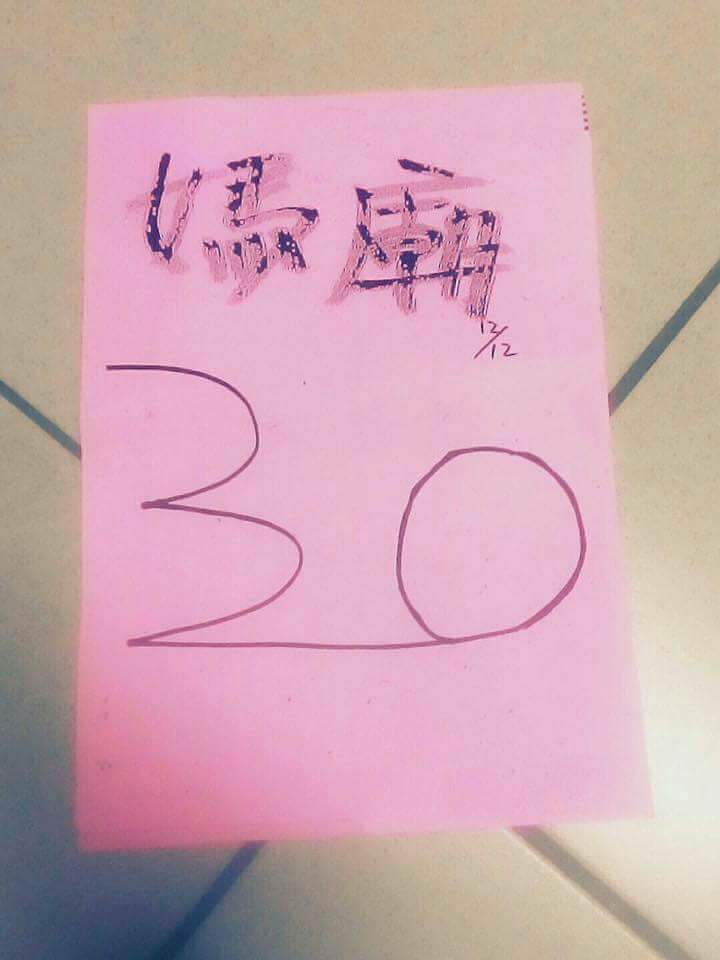 媽廟
12/12
30